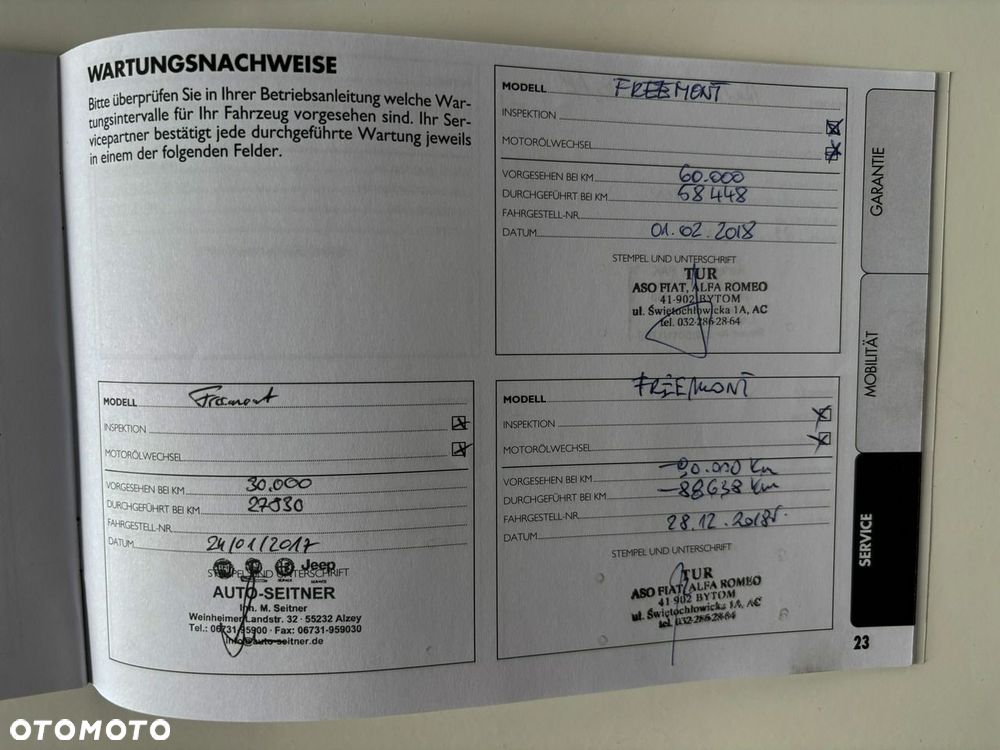 WARTUNGSNACHWEISE
Bitte überprüfen Sie in Ihrer Betriebsanleitung welche War-
tungsintervalle für Ihr Fahrzeug vorgesehen sind. Ihr Ser-
vicepartner bestätigt jede durchgeführte Wartung jeweils
in einem der folgenden Felder.
MODELL FREEMONT
INSPEKTION
MOTORÖLWECHSEL
VORGESEHEN BEI KM 60.000
DURCHGEFÜHRT BEI KM 58 448
FAHRGESTELL-NR.
DATUM 01.02.2018
STEMPEL UND UNTERSCHRIFT
TUR
ASO FIAT, ALFA ROMEO
41-902 BYTOM
ul. Świętochłowicka 1A, AC
tel. 032-286-28-64
MODELL Freemont
INSPEKTION
MOTORÖLWECHSEL
VORGESEHEN BEI KM 30.000
DURCHGEFÜHRT BEI KM 27930
FAHRGESTELL-NR.
DATUM 24/01/2017
Jeep
STEMPEL UND UNTERSCHRIFT
AUTO-SEITNER
Inh. M. Seitner
Weinheimer Landstr. 32 · 55232 Alzey
Tel.: 06731-95900 · Fax: 06731-959030
info@auto-seitner.de
MODELL FREEMONT
INSPEKTION
MOTORÖLWECHSEL
VORGESEHEN BEI KM -90.000 Km
DURCHGEFÜHRT BEI KM -88638 Km
FAHRGESTELL-NR.
DATUM 28.12.2018r.
STEMPEL UND UNTERSCHRIFT
TUR
ASO FIAT, ALFA ROMEO
41-902 BYTOM
ul. Świętochłowicka 1A, AC
tel. 032-286-28-64
GARANTIE
MOBILITÄT
SERVICE
23
OTOMOTO